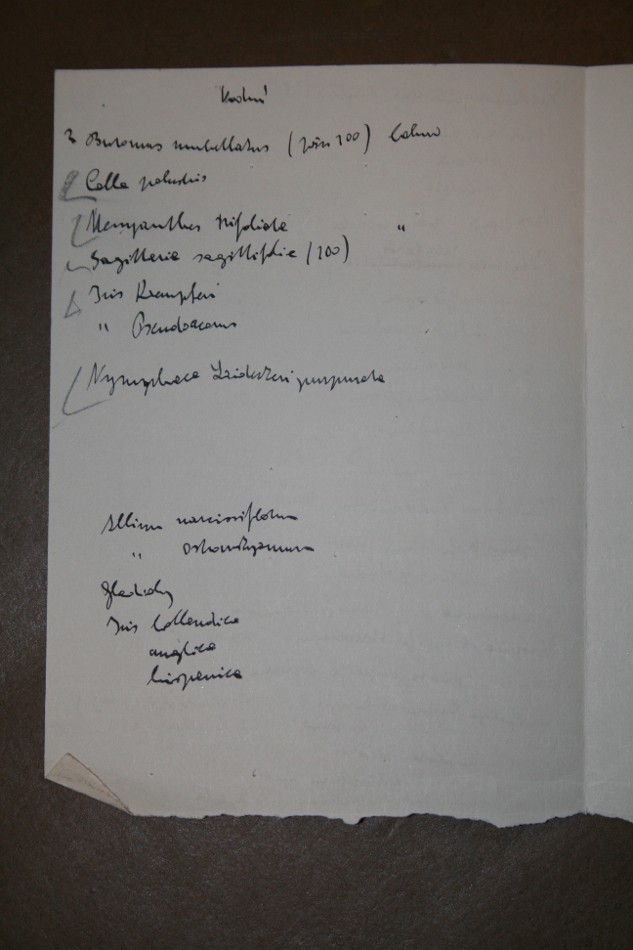 Vodní
Butomus umbellatus (přes 200)
Calla palustris
Menyanthes trifoliata "
Sagittaria sagittifolia (200)
Iris Kaempferi
" Pseudoacorus
Nymphaea purpurata
Allium narcissiflorum
" ostrowskyanum
Gladioly
Iris hollandica
anglica
hispanica